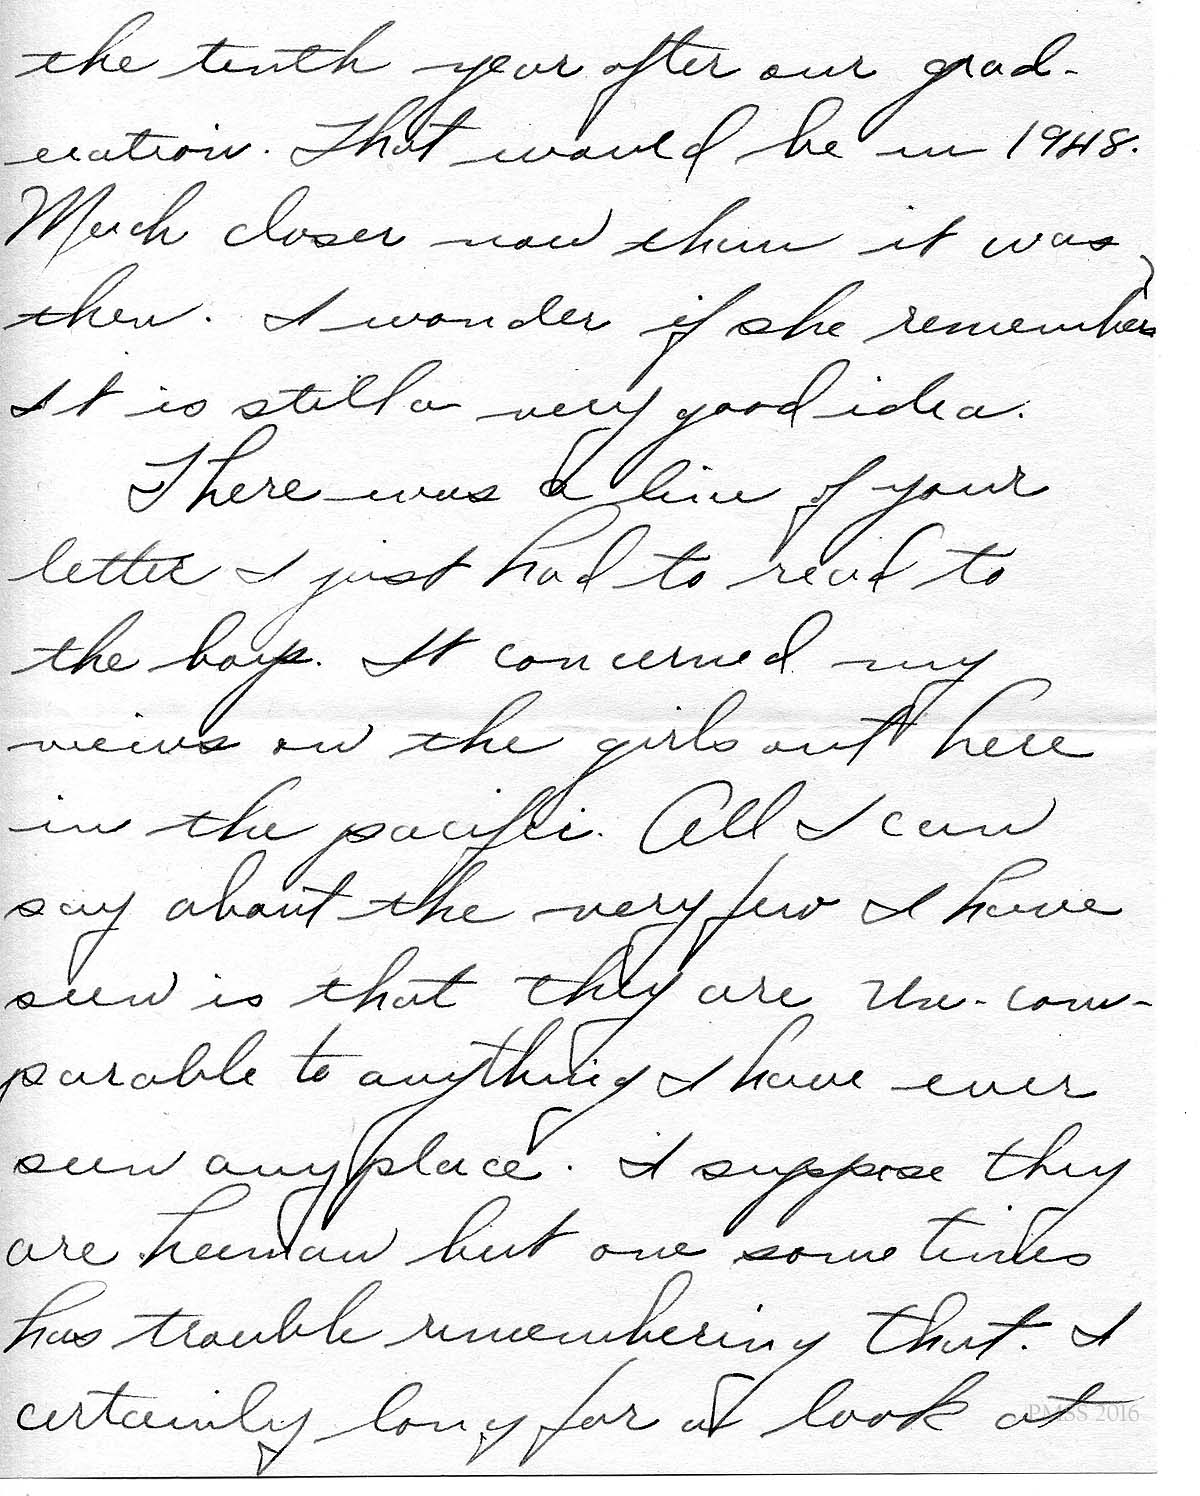 the tenth year after our grad-
uation. That would be in 1948.
Much closer now than it was
then. I wonder if she remembers
It is still a very good idea.
There was a line of your
letter I just had to read to
the boys. It concerned my
views on the girls out here
in the pacific. All I can
say about the very few I have
seen is that they are un-com-
parable to anything I have ever
seen any place. I suppose they
are human but one sometimes
has trouble remembering that. I
certainly long for a look at
PMSS 2016